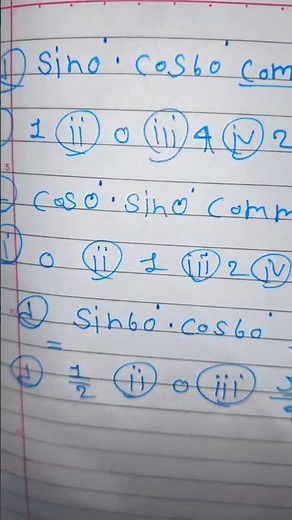 ① sin0°· cos60° com
1 ⓘⓘ 0 ⓘⓘⓘ 4 ⓘⓥ 2
cos0°· sin0° comm
ⓘ 0 ⓘⓘ 1 ⓘⓘⓘ 2 ⓘⓥ
sin60°· cos60°
① 1/2 ⓘⓘ 0 ⓘⓘⓘ